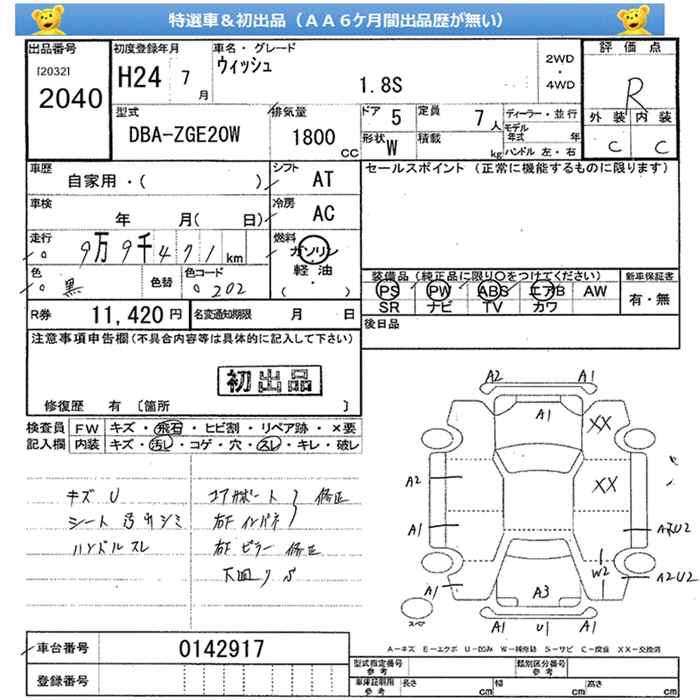 特選車＆初出品（ＡＡ６ケ月間出品歴が無い）
出品番号 初度登録年月 車名・グレード 評価点
[2032] ウィッシュ 2WD
2040 H24 7月 1.8S ・4WD R
型式 排気量 ドア 5 定員 7人 ディーラー・並行 外装 内装
DBA-ZGE20W 1800CC 形状 W 積載 kg モデル年式 年 C C
ハンドル 左・右
車歴 シフト セールスポイント（正常に機能するものに限ります）
自家用・( ) AT
車検 冷房
年 月( 日) AC
走行 燃料
9万9千471km ガソリン
色 色替 色コード 軽油 装備品（純正品に限り○をつけてください） 新車保証書
黒 202 ( ) PS PW ABS エアB AW 有・無
SR ナビ TV カワ
R券 11,420円 名変通知期限 月 日 後日品
注意事項申告欄(不具合内容等は具体的に記入して下さい)
初出品
修復歴 有 〔箇所 〕
検査員 FW キズ・飛石・ヒビ割・リペア跡・×要
記入欄 内装 キズ・汚レ・コゲ・穴・スレ・キレ・破レ
キズ U コアサポート 修正
シート 汚れシミ 右F インパネ
ハンドル スレ 右F ピラー 修正
下回り S
A2 A1
A1 XX
A2 XX
A1 A2U2
W2 A2U2
A1 A3
スペア A1 U1 A1
A－キズ E－エクボ U－凹み W－補修跡 S－サビ C－腐食 XX－交換済
車台番号 0142917
登録番号
型式指定番号 参考 類別区分番号 参考
車庫証明用 参考 長さ cm 幅 cm 高さ cm